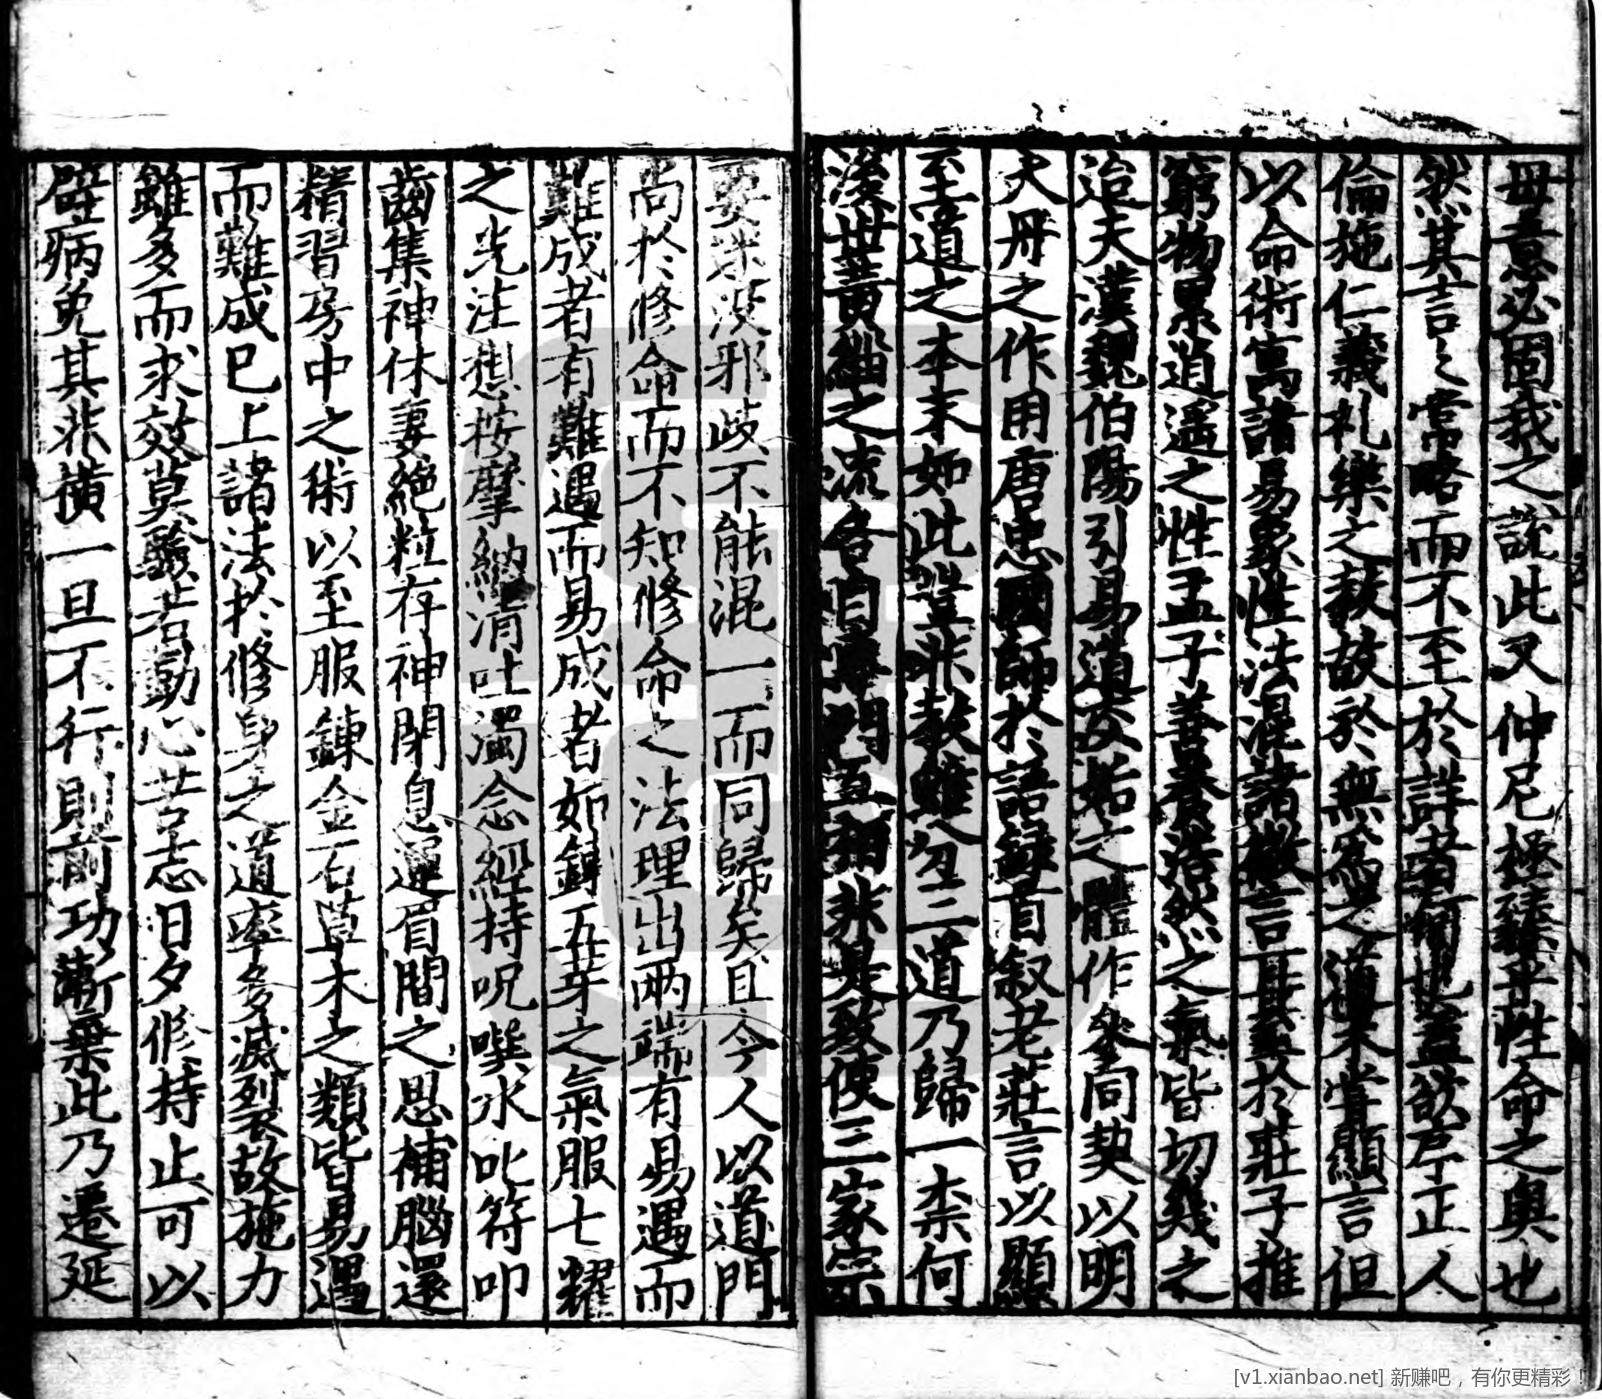 毋意必固我之說此又仲尼極臻乎性命之奧也
然其言之常略而不至於詳者何也蓋欲序正人
倫施仁義礼樂之教故於無為之道未嘗顯言但
以命術寓諸易象性法混諸微言耳至於莊子推
窮物累逍遥之性孟子善養浩然之氣皆切幾之
迨夫漢魏伯陽引易道交姤之體作參同契以明
大丹之作用唐忠國師於語録首叙老莊言以顯
至道之本末如此豈非教雖分三道乃歸一柰何
後世黄緇之流各自專門互相非是致使三家宗
要迷没邪歧不能混一而同歸矣且今人以道門
尚於修命而不知修命之法理出兩端有易遇而
難成者有難遇而易成者如鍊五芽之氣服七耀
之光注想按摩納清吐濁念經持呪噀水叱符叩
齒集神休妻絶粒存神閉息運眉間之思補腦還
精習房中之術以至服鍊金石草木之類皆易遇
而難成已上諸法於修身之道率多滅裂故施力
雖多而求效莫驗若勤心苦志日夕修持止可以
辟病免其非橫一旦不行則前功漸棄此乃遷延
[v1.xianbao.net] 新赚吧，有你更精彩！